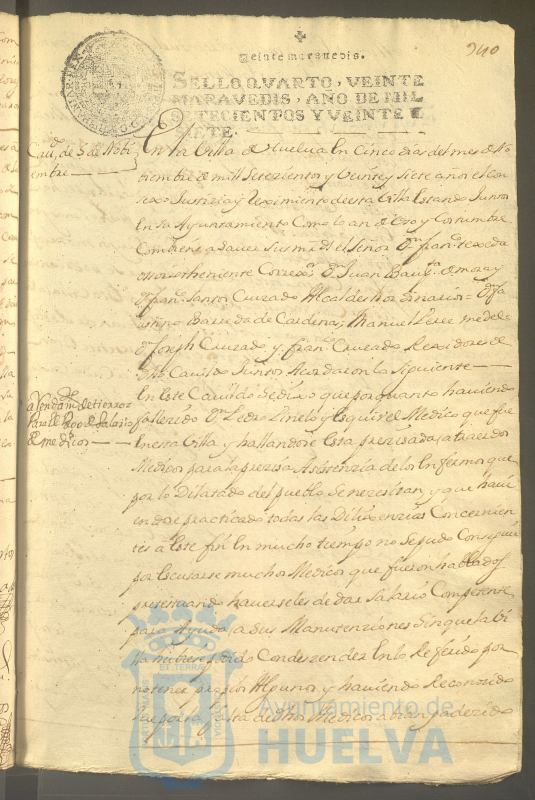 240
Veinte marauedis.
SELLO QVARTO, VEINTE
MARAVEDIS, AÑO DE MIL
SETECIENTOS Y VEINTE E
SIETE.
Cau.do de 5 de Nobi
embre
En la Villa de Huelua En Cinco dias del mes de No
biembre de mill Setezientos y Veinte y siete años el Con
sexo Justicia y reximiento de esta Villa Estando Juntos
En su Ayuntamiento Como lo an de Uso y Costumbre
Combiene a sauer sus mrds el Señor Dn fran.co
theniente Correxor Dn Juan Baup.ta de mora y
Dn fran.co Santos Cruzado Alcaldes hordinarios = Dn
Barreda de Cardenas, Manuel Perez
Dn Joseph Cruzado y fran.co Cruzado Rexidores de
dho Cauildo Juntos Acordaron lo Siguiente
En este Cauildo se dixo que por quanto hauiendo
fallezido Dn Pedro Pinelo y Esquivel Medico que fue
en esta Villa y hallandose Esta prezisada a traer dos
Medicos para la preziza Asistenzia de los Enfermos que
por lo Dilatado del pueblo se nezesitan, y que haui
endose practicado todas las Dilixenzias Concernien
tes a Este fin En mucho tiempo no se pudo Conseguir
por Escusarse muchos Medicos que fueron hablados
hauerseles de dar Salario Competente
para Ayuda a sus Manutenziones sin que la Vi
lla hubiese podido Condeszender En lo Referido por
no tener propios Algunos y hauiendo Reconozido
que por la falta de dhos Medicos
a
para el pago del Salario
de medicos
ET TERRÆ
Ayuntamiento de
HUELVA